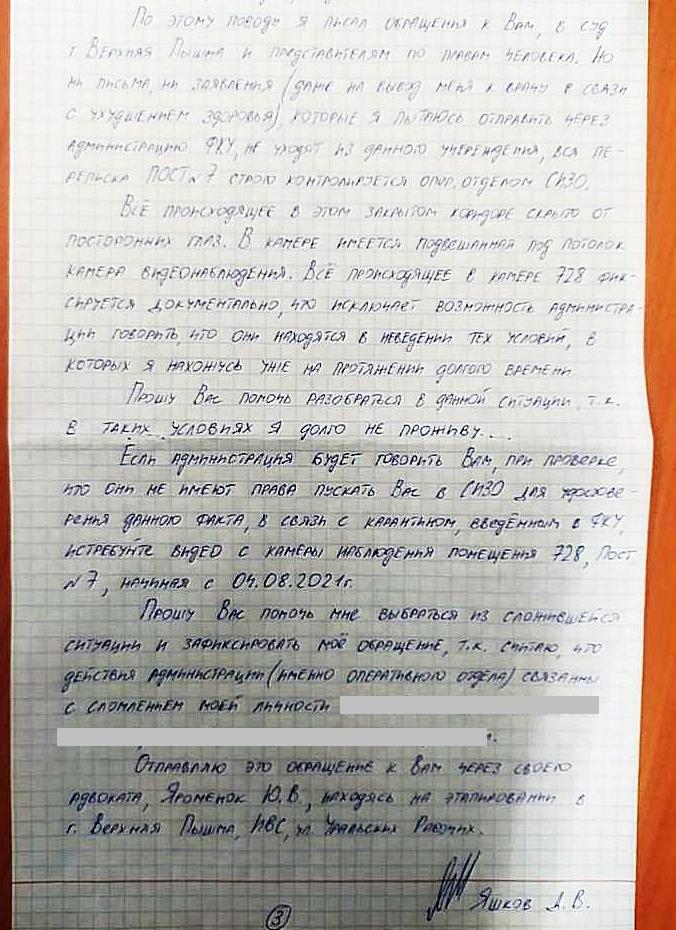 По этому поводу я писал обращения к Вам, в суд
г. Верхняя Пышма и представителям по правам человека. Но
ни письма, ни заявления (даже на вывод меня к врачу в связи
с ухудшением здоровья), которые я пытаюсь отправить через
администрацию ФКУ, не уходят из данного учереждения, вся пе-
реписка ПОСТ №7 строго контролируется опер. отделом СИЗО.
Всё происходящее в этом закрытом коридоре скрыто от
посторонних глаз. В камере имеется подвешанная под потолок
камера видеонаблюдения. Всё происходящее в камере 728 фик-
сируется документально, что исключает возможность администра-
ции говорить, что они находятся в неведении тех условий, в
которых я нахожусь уже на протяжении долгого времени
Прошу Вас помочь разобраться в данной ситуации, т.к.
в таких условиях я долго не проживу...
Если администрация будет говорить Вам, при проверке,
что они не имеют права пускать Вас в СИЗО для удостове-
рения данного факта, в связи с карантином, введённым в ФКУ,
истребуйте видео с камеры наблюдения помещения 728, Пост
№7, начиная с 04.08.2021г.
Прошу Вас помочь мне выбраться из сложившейся
ситуации и зафиксировать моё обращение, т.к. считаю, что
действия администрации (именно оперативного отдела) связанны
с сломлением моей личности
Отправляю это обращение к Вам через своего
адвоката, Яроменок Ю.В., находясь на этапировании в
г. Верхняя Пышма, ИВС, ул. Уральских Рабочих.
Яшков А.В.
3